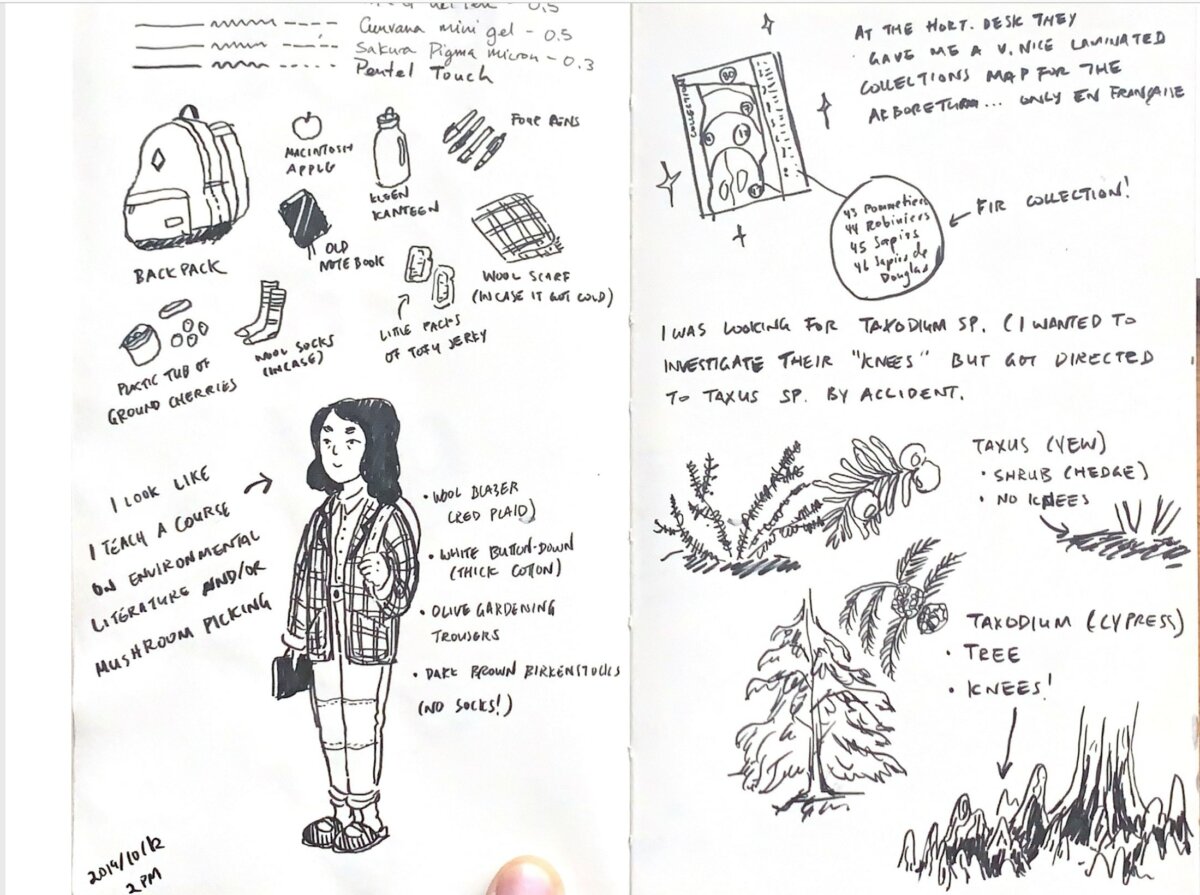 - 0.5
Cunvana mini gel - 0.5
Sakura Pigma micron - 0.3
Pentel Touch
BACKPACK
MACINTOSH
APPLE
KLEEN
KANTEEN
FOUR PENS
OLD
NOTEBOOK
WOOL SCARF
(INCASE IT GOT COLD)
PLASTIC TUB OF
GROUND CHERRIES
WOOL SOCKS
(INCASE)
LITTLE PACKS
OF TOFU JERKY
I LOOK LIKE
I TEACH A COURSE
ON ENVIRONMENTAL
LITERATURE AND/OR
MUSHROOM PICKING
• WOOL BLAZER
(RED PLAID)
• WHITE BUTTON-DOWN
(THICK COTTON)
• OLIVE GARDENING
TROUSERS
• DARK BROWN BIRKENSTOCKS
(NO SOCKS!)
2019/10/12
2 PM
AT THE HORT. DESK THEY
GAVE ME A V. NICE LAMINATED
COLLECTIONS MAP FOR THE
ARBORETUM... ONLY EN FRANÇAISE
43 Pommetiers
44 Robiniers
45 Sapins
46 Sapins de
Douglas
FIR COLLECTION!
I WAS LOOKING FOR TAXODIUM SP. (I WANTED TO
INVESTIGATE THEIR "KNEES" BUT GOT DIRECTED
TO TAXUS SP. BY ACCIDENT.
TAXUS (YEW)
• SHRUB (HEDGE)
• NO KNEES
TAXODIUM (CYPRESS)
• TREE
• KNEES!